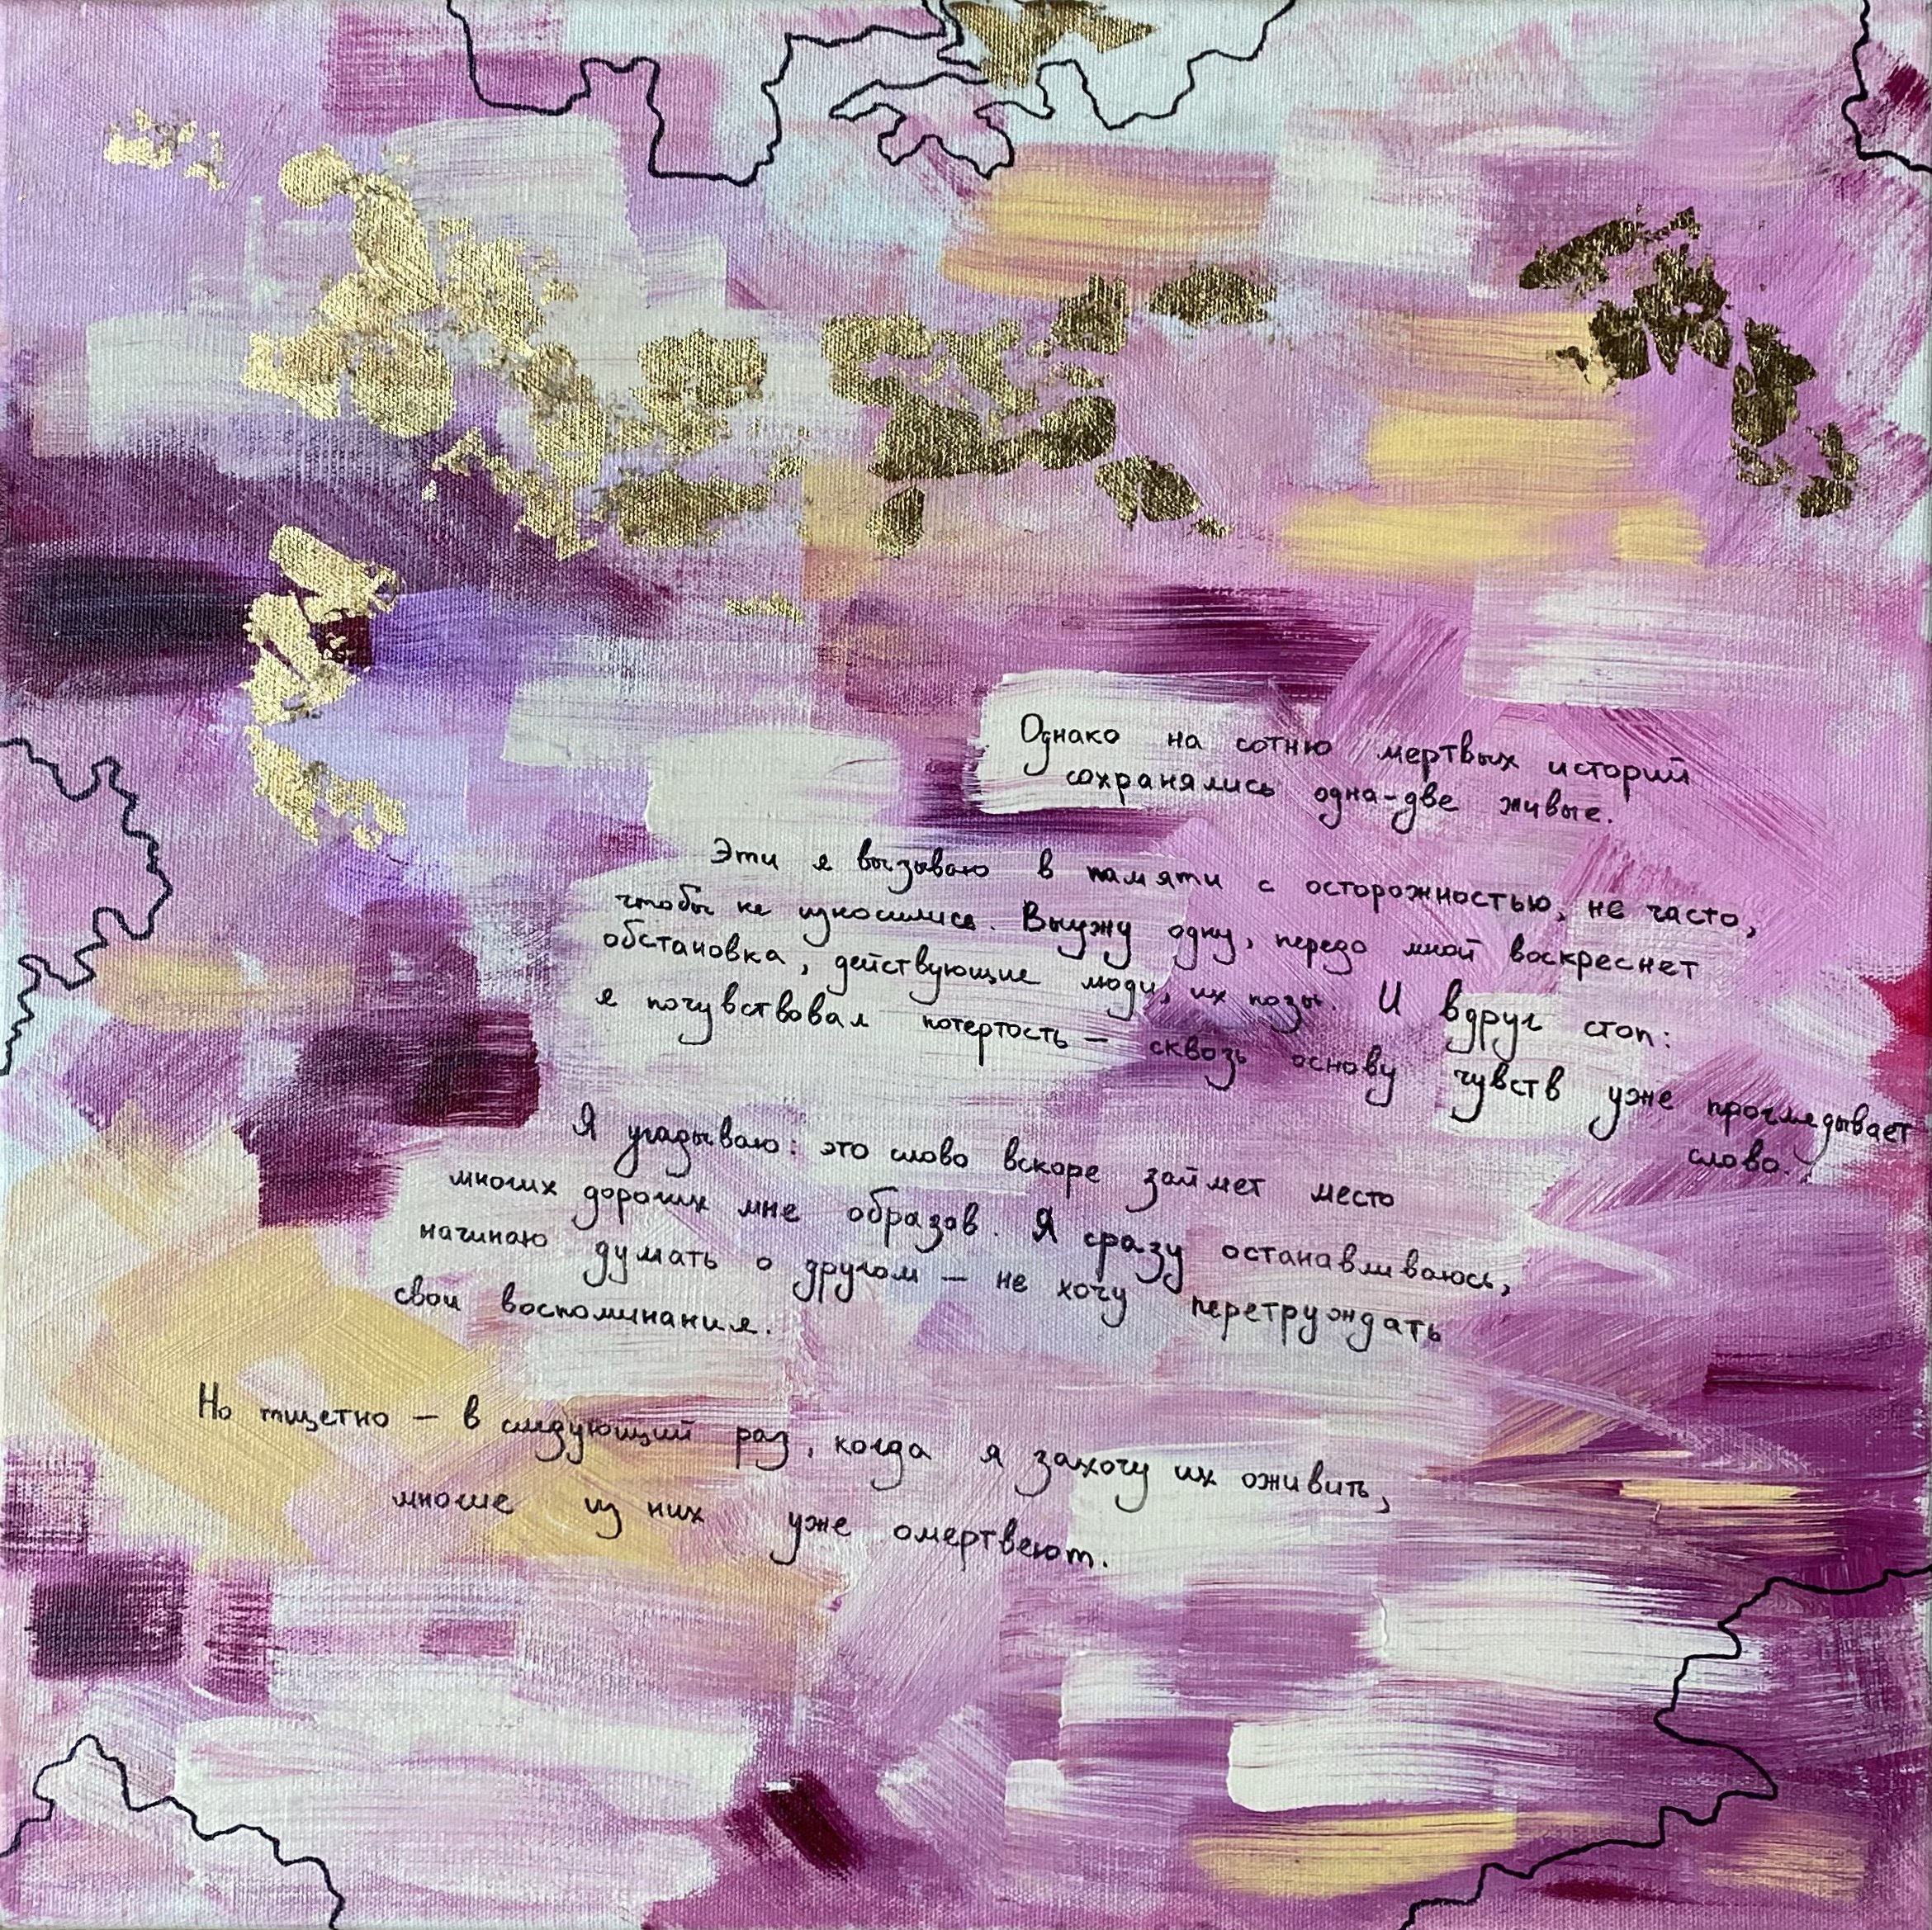 Однако на сотню мертвых историй
сохранялись одна-две живые.
Эти я вызываю в памяти с осторожностью, не часто,
чтобы не износились. Выужу одну, передо мной воскреснет
обстановка, действующие люди, их позы. И вдруг стоп:
я почувствовал потертость – сквозь основу чувств уже проглядывает
слово.
Я угадываю: это слово вскоре займет место
многих дорогих мне образов. Я сразу останавливаюсь,
начинаю думать о другом – не хочу перетруждать
свои воспоминания.
Но тщетно – в следующий раз, когда я захочу их оживить,
многие из них уже омертвеют.